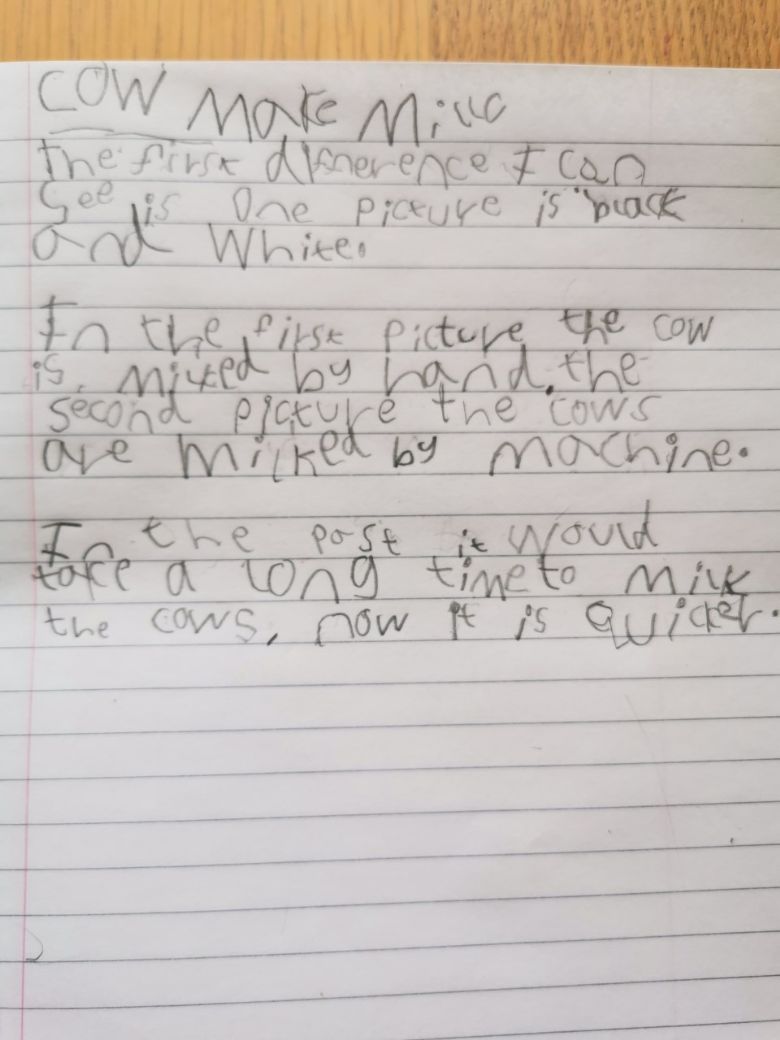 COW Make Milk
The first difference I can
See is One picture is black
and White.
In the first picture the cow
is milked by hand. the
second picture the cows
are milked by machine.
In the past it would
take a long time to milk
the cows, now it is quicker.